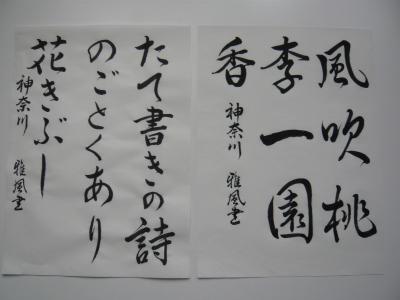 風吹桃
李一園
香
神奈川 雅風書
たて書きの詩
のごとくあり
花きぶし
神奈川 雅風書